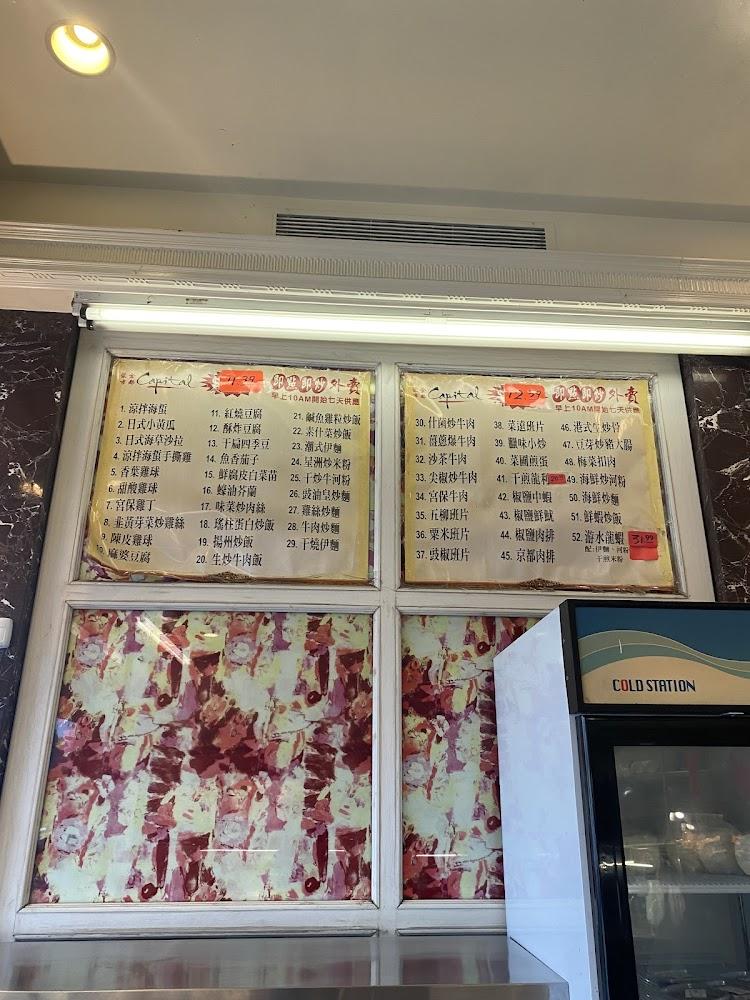 Capital
即叫即炒外賣
早上10AM開始七天供應
1. 涼拌海蜇
2. 日式小黃瓜
3. 日式海草沙拉
4. 涼拌海蜇手撕雞
5. 香葉雞球
6. 甜酸雞球
7. 宮保雞丁
8. 韮黃芽菜炒雞絲
9. 陳皮雞球
麻婆豆腐
11. 紅燒豆腐
12. 酥炸豆腐
13. 干扁四季豆
14. 魚香茄子
15. 鮮腐皮白菜苗
16. 蠔油芥蘭
17. 味菜炒肉絲
18. 瑤柱蛋白炒飯
19. 揚州炒飯
20. 生炒牛肉飯
21. 鹹魚雞粒炒飯
22. 素什菜炒飯
23. 潮式伊麵
24. 星洲炒米粉
25. 干炒牛河粉
26. 豉油皇炒麵
27. 雞絲炒麵
28. 牛肉炒麵
29. 干燒伊麵
Capital
12.99
即叫即炒外賣
早上10AM開始七天供應
30. 什菌炒牛肉
31. 薑蔥爆牛肉
32. 沙茶牛肉
33. 尖椒炒牛肉
34. 宮保牛肉
35. 五柳班片
36. 粟米班片
37. 豉椒班片
38. 菜遠班片
39. 臘味小炒
40. 菜圃煎蛋
41. 干煎龍利
42. 椒鹽中蝦
43. 椒鹽鮮魷
44. 椒鹽肉排
45. 京都肉排
46. 港式生炒骨
47. 豆芽炒豬大腸
48. 梅菜扣肉
49. 海鮮炒河粉
50. 海鮮炒麵
51. 鮮蝦炒飯
52. 游水龍蝦
31.99
配:伊麵、河粉
干煎米粉
COLD STATION